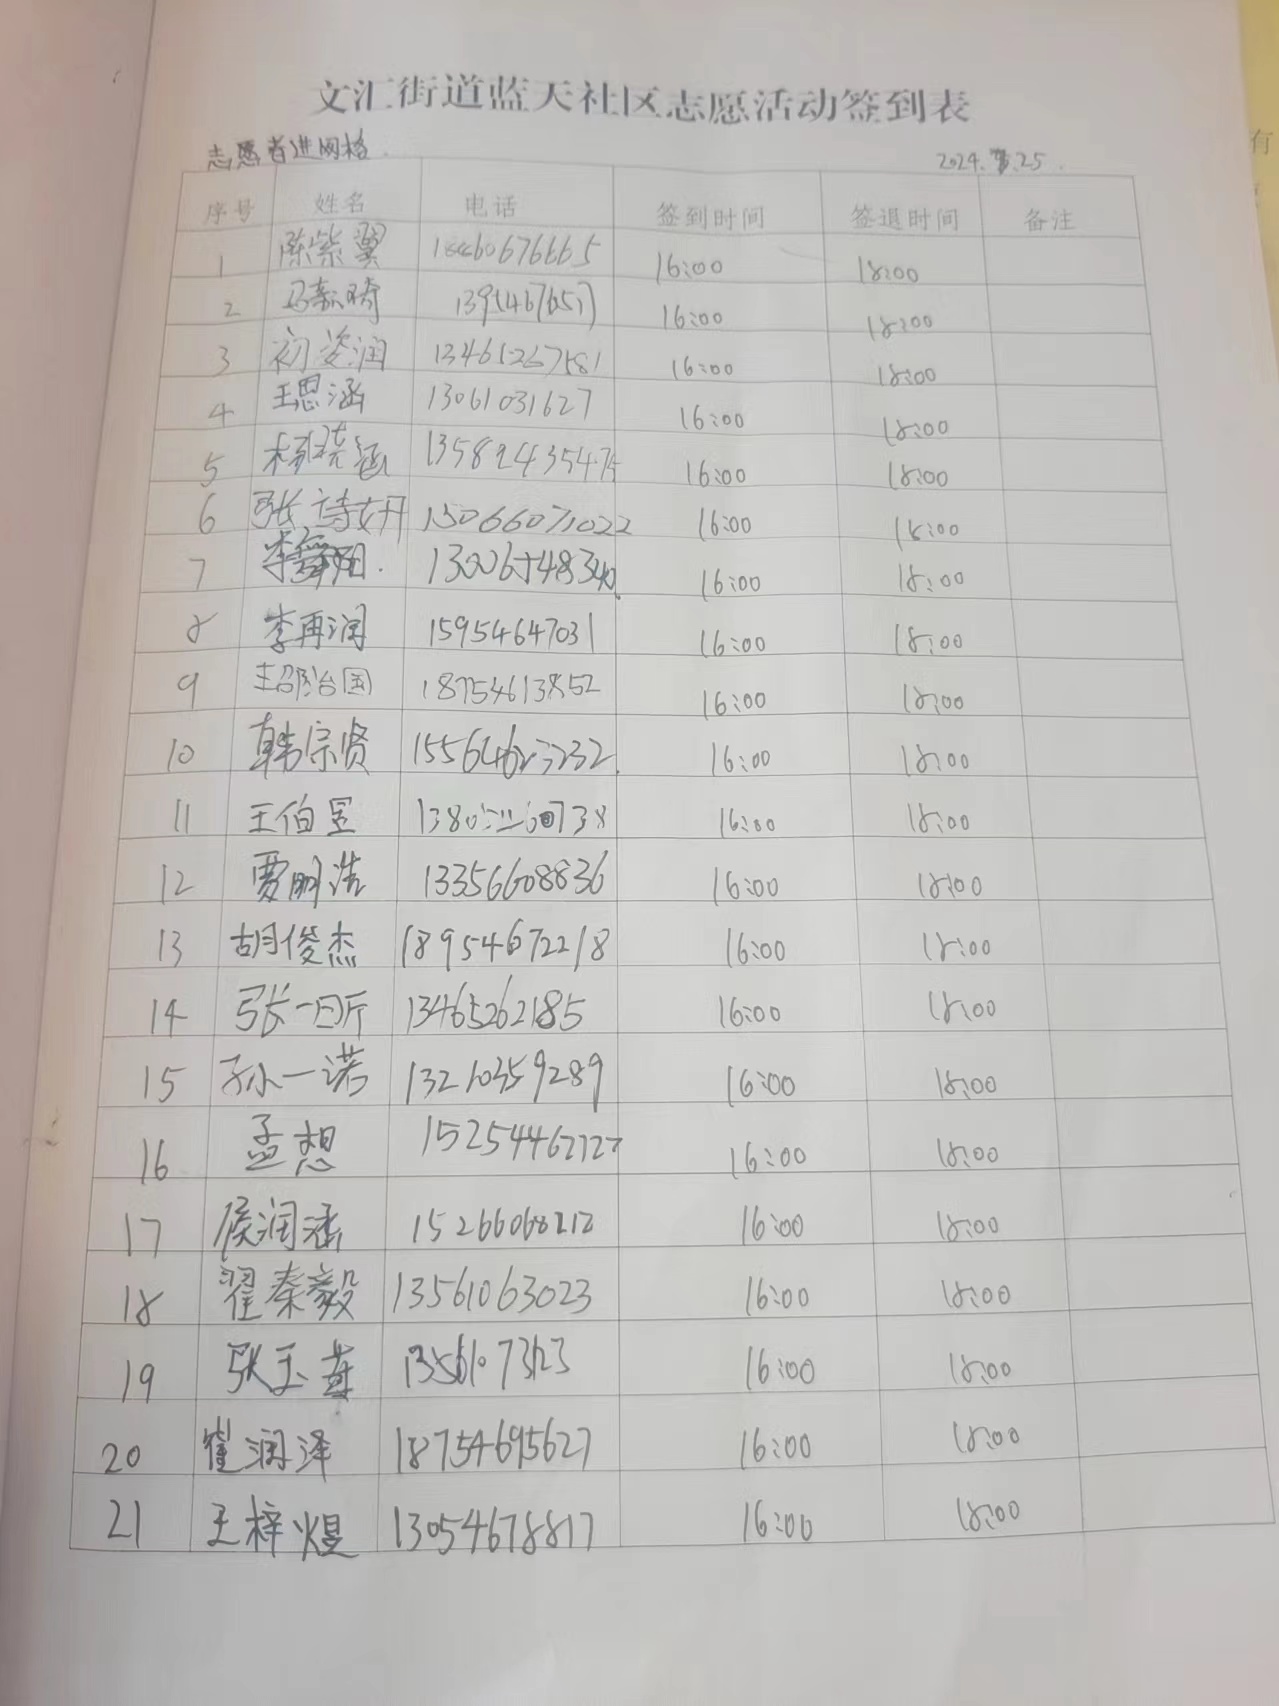 文汇街道蓝天社区志愿活动签到表
志愿者进网格
2024. .25
序号 姓名 电话 签到时间 签退时间 备注
1 陈紫翼 16:00 18:00
2 16:00 18:00
3 初姿润 13461267581 16:00 18:00
4 王思涵 13061031627 16:00 18:00
5 16:00 18:00
6 张诗妍 15066071022 16:00 18:00
7 16:00 18:00
8 李再润 15954647031 16:00 18:00
9 18754613852 16:00 18:00
10 韩宗贤 16:00 18:00
11 王伯昱 16:00 18:00
12 贾明浩 13356608836 16:00 18:00
13 胡俊杰 18954672218 16:00 18:00
14 张一昕 13465262185 16:00 18:00
15 孙一诺 13210359289 16:00 18:00
16 孟想 15254467727 16:00 18:00
17 侯润涵 15266068212 16:00 18:00
18 翟秦毅 13561063023 16:00 18:00
19 16:00 18:00
20 崔润泽 18754695627 16:00 18:00
21 王梓煜 13054678817 16:00 18:00
有